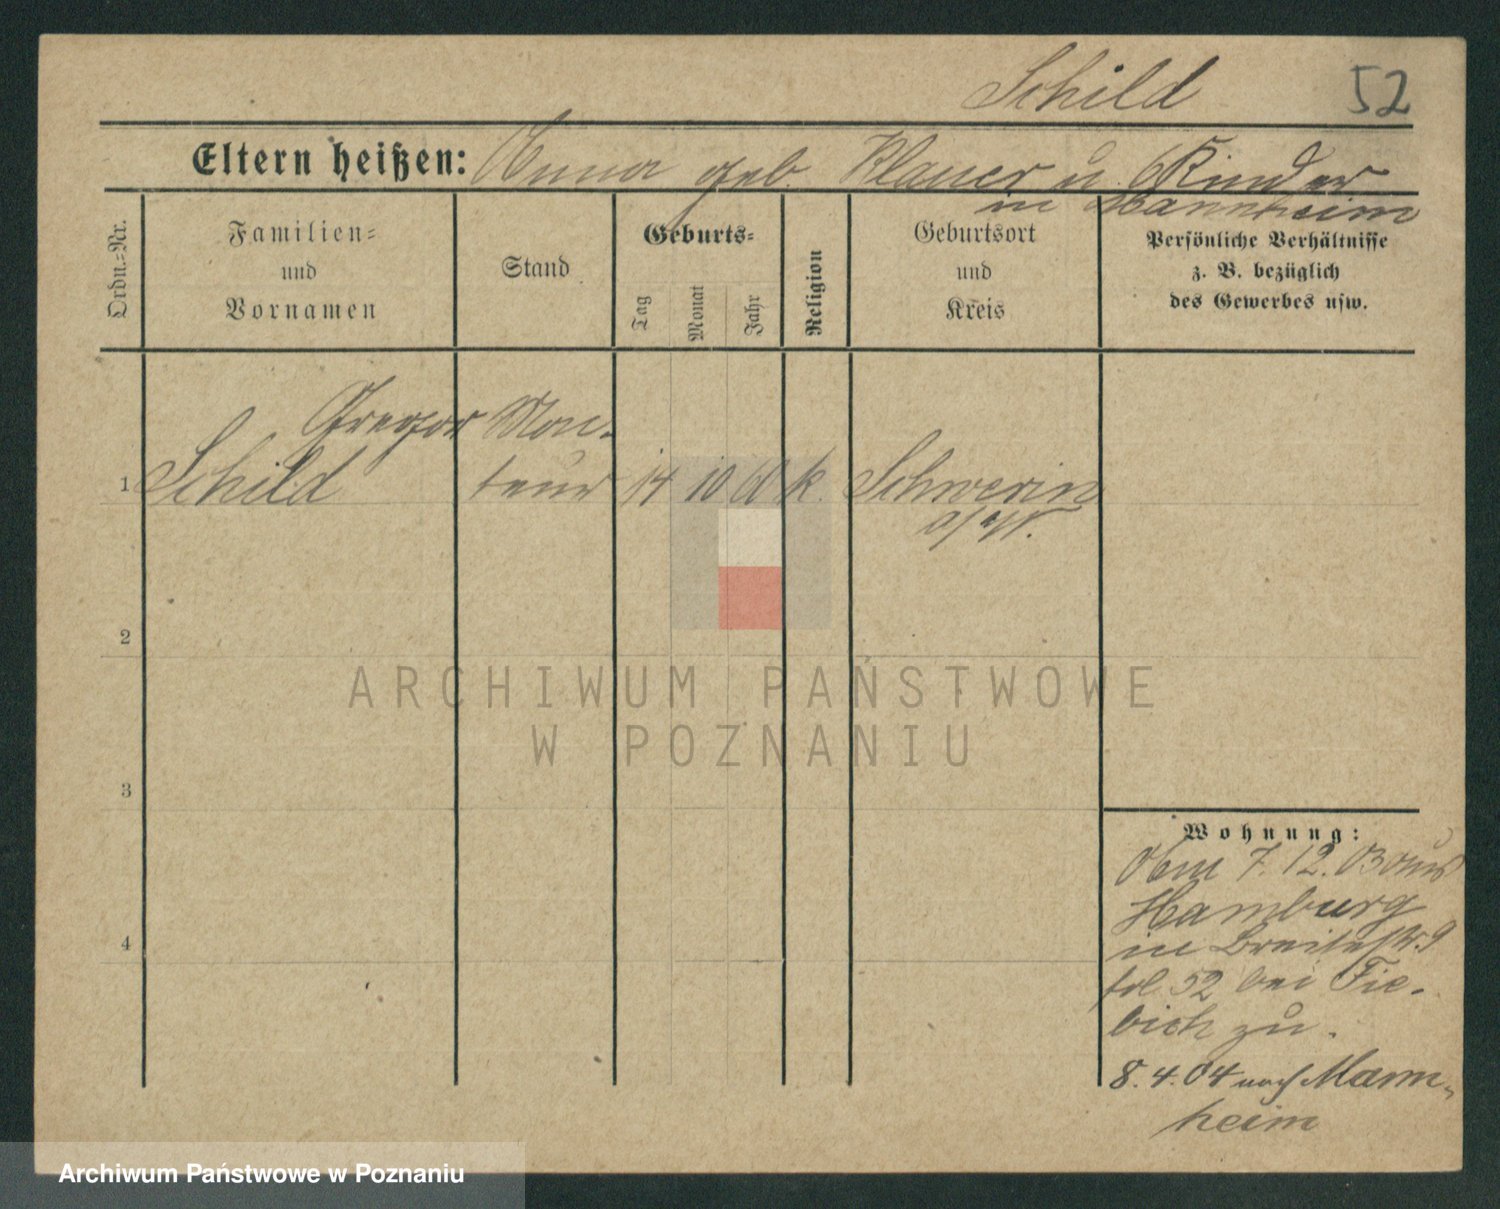 Schild 52
Eltern heißen: Anna geb. Klauer u. 6 Kinder
in Mannheim
Ordn.-Nr.
Familien-
und
Vornamen
Stand
Geburts-
Tag
Monat
Jahr
Religion
Geburtsort
und
Kreis
Persönliche Verhältnisse
z. B. bezüglich
des Gewerbes usw.
Gregor Mon-
1 Schild teur 14 10 60 k. Schwerin
a/W.
2
3
4
Wohnung:
7.12.03 aus
Hamburg
in Breitestr. 9
52 bei Fie-
bich zu.
8.4.04 nach Mann-
heim
ARCHIWUM PAŃSTWOWE
W POZNANIU
Archiwum Państwowe w Poznaniu